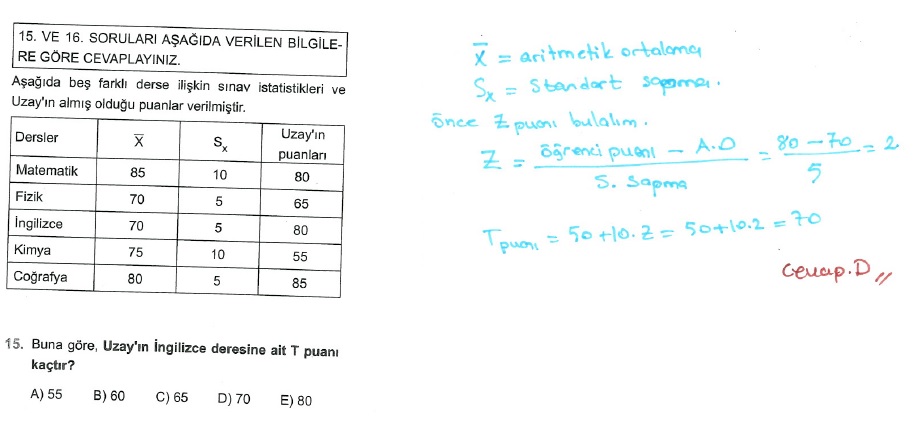 15. VE 16. SORULARI AŞAĞIDA VERİLEN BİLGİLE-
RE GÖRE CEVAPLAYINIZ.
Aşağıda beş farklı derse ilişkin sınav istatistikleri ve
Uzay'ın almış olduğu puanlar verilmiştir.
Dersler X̄ Sx Uzay'ın puanları
Matematik 85 10 80
Fizik 70 5 65
İngilizce 70 5 80
Kimya 75 10 55
Coğrafya 80 5 85
15. Buna göre, Uzay'ın İngilizce deresine ait T puanı
kaçtır?
A) 55 B) 60 C) 65 D) 70 E) 80
X̄ = aritmetik ortalama
Sx = Standart sapma.
önce Z puanı bulalım.
Z = öğrenci puanı - A.O / S. Sapma = 80-70 / 5 = 2
T puanı = 50+10.Z = 50+10.2 = 70
Cevap.D //